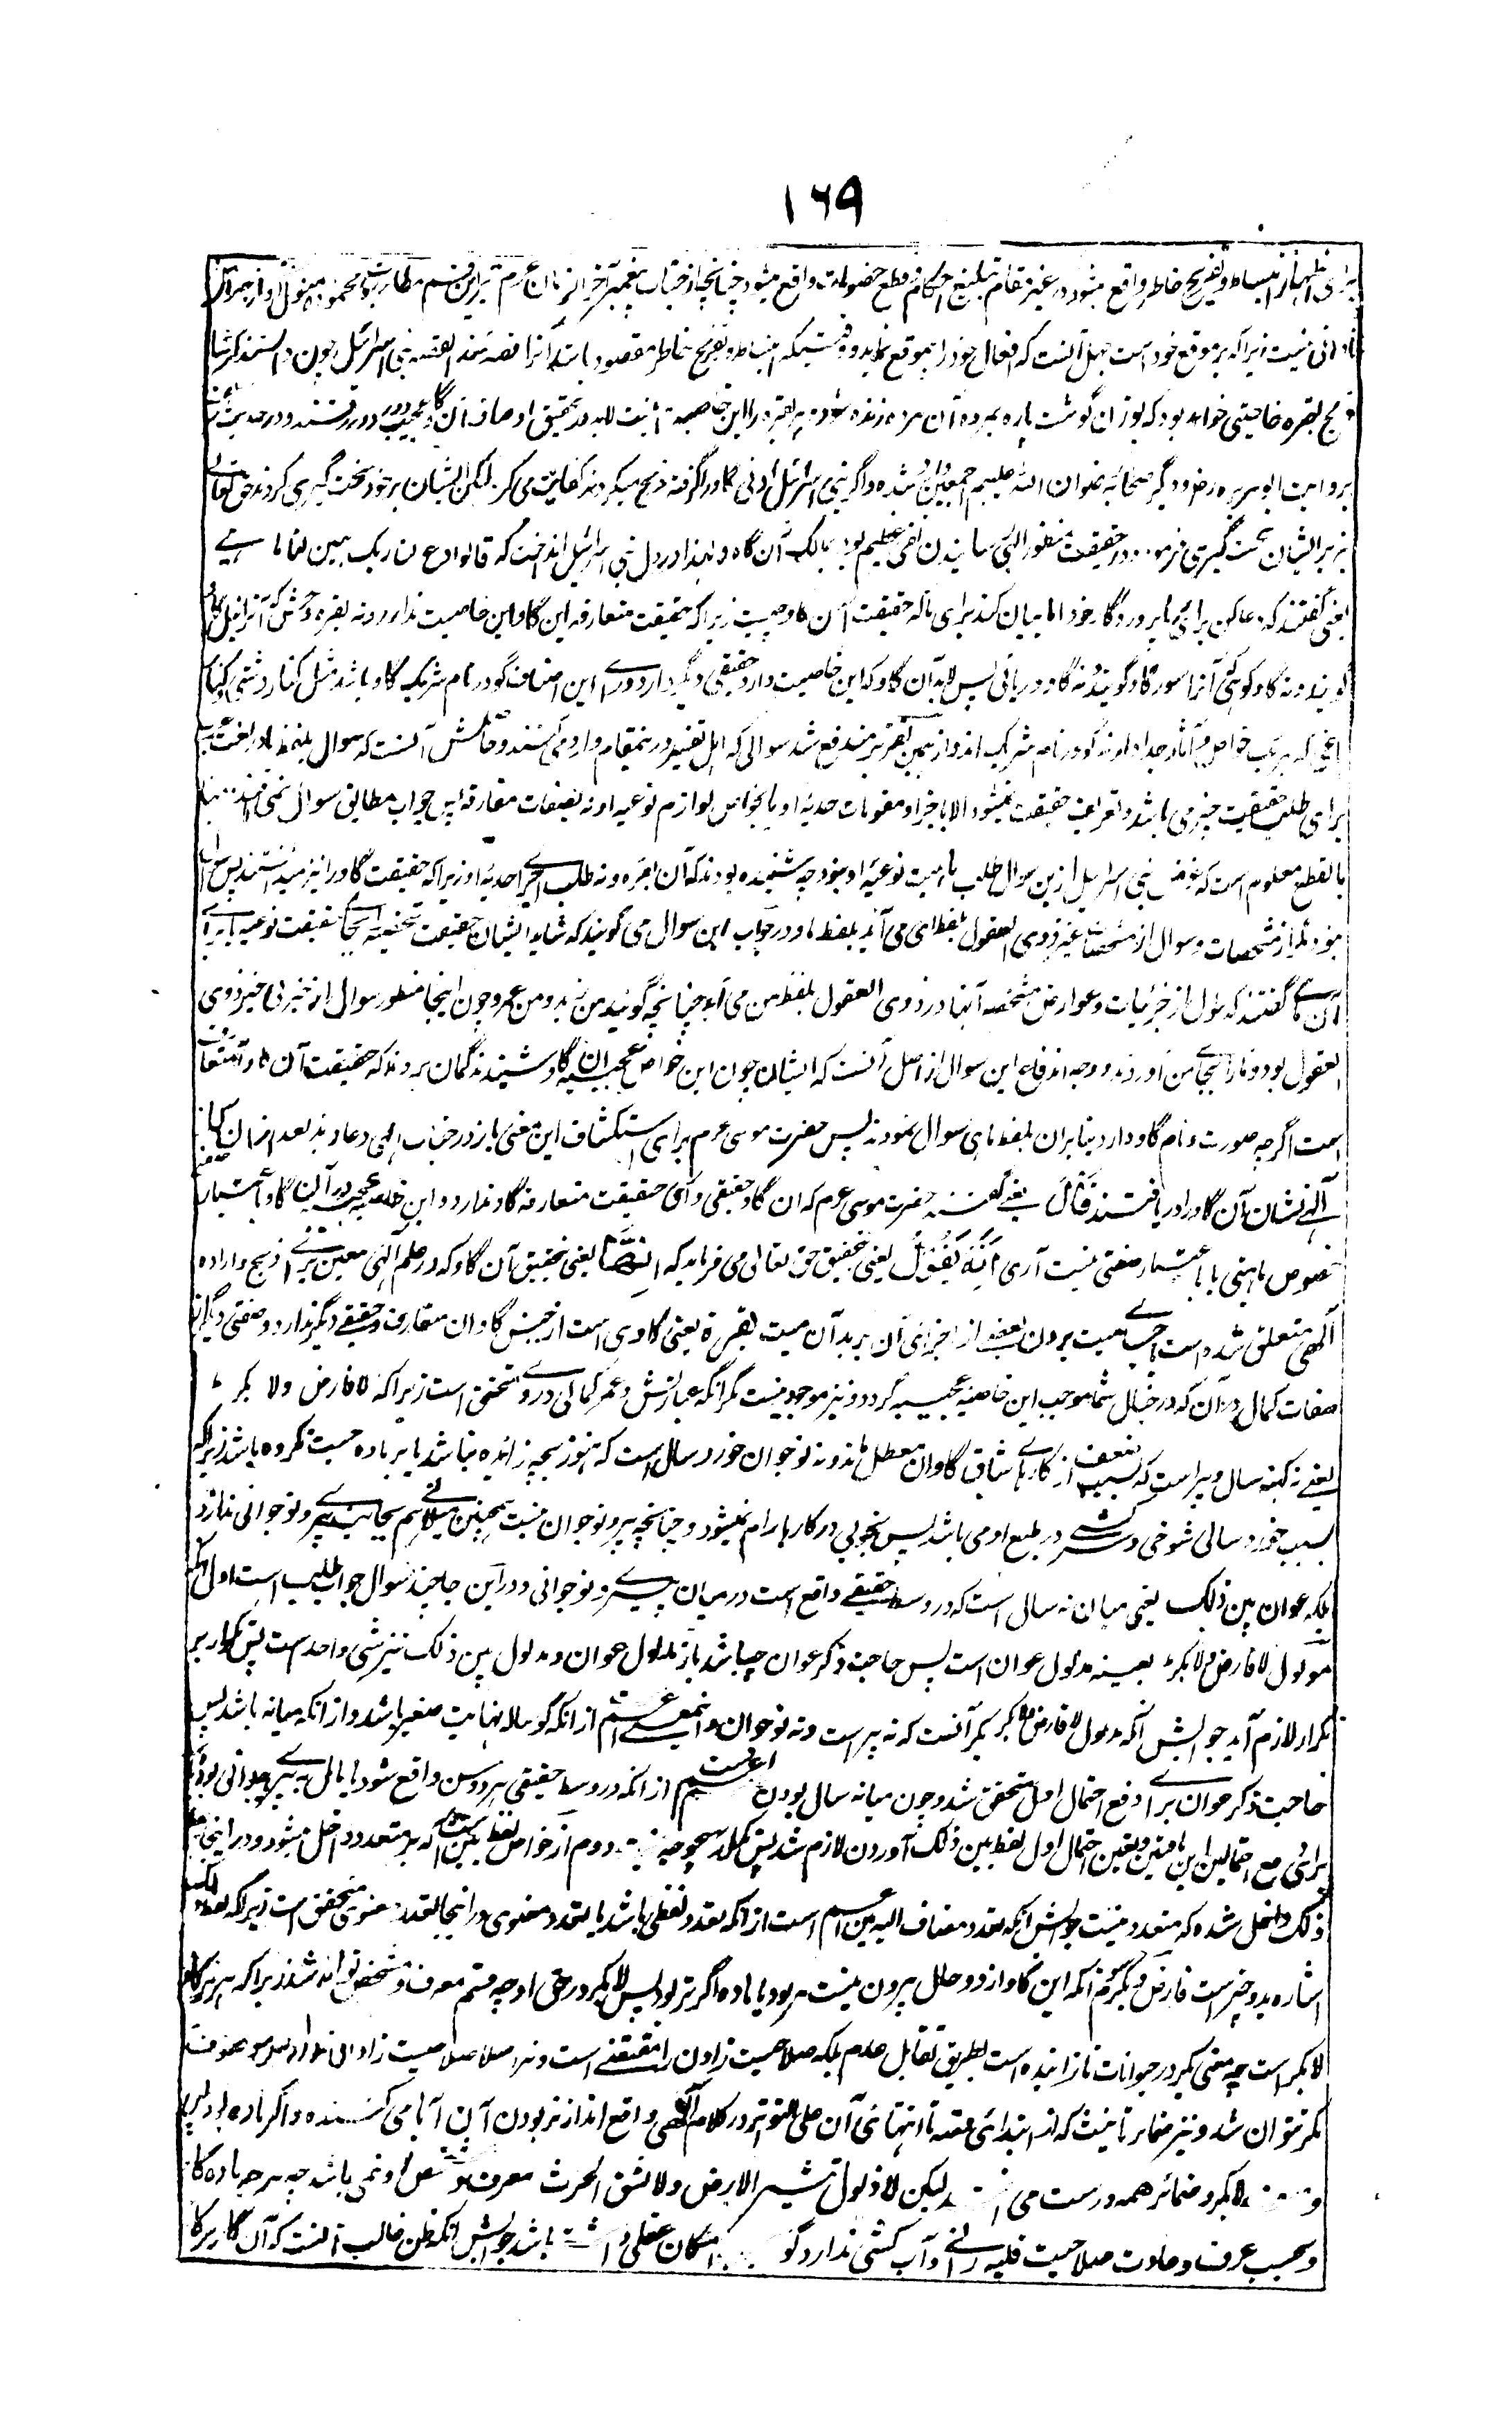 ۱۶۹
برای اظهار انبساط و تفریح خاطر واقع میشود در غیر مقام تبلیغ احکام و قطع خصومات واقع میشود چنانچه از جناب پیغمبر آخر الزمان عرم نیز این قسم مطایبات
نادانی نیست زیراکه بر موقع خود است جهل آنست که افعال خود را بموقع نماید و وقتیکه انبساط و تفریح خاطر مقصود باشد آنرا القصه بنی اسرائیل چون دانستند که
ذبح بقره خاصیتی خواهد بود که بوزن گوشت پاره بمرده آن مرده زنده شود هر بقره را این خاصیت ثابت لابد در تحقیق اوصاف آن گاو عجیب دور دور رفتند و در حدیث
بروایت ابو هریره رض و دیگر صحابه رضوان الله علیهم اجمعین وارد شده که اگر بنی اسرائیل ادنی گاو را گرفته ذبح میکردند کفایت می کرد لیکن ایشان بر خود سخت گیری کردند حق تعالی
نیز بر ایشان سخت گیری فرمود و در حقیقت منظور الهی رسانیدن نفع عظیم بود بمالک آن گاو و لهذا در دل بنی اسرائیل انداخت که قالوا ادع لنا ربک یبین لنا ما هی
یعنی گفتند که دعا کن برای ما پرورد گار خود را تا بیان کند برای ما که حقیقت آن گاو چیست زیراکه حقیقت متعارفه این گاو این خاصیت ندارد و نه بقره وحشی که آنرا نیل گاو
گویند و نه گاو کوهی که آنرا سوره گاو گویند و نه گاو دریائی پس لابد آن گاو که این خاصیت دارد حقیقتی دیگر دارد ورای این اصناف گو در نام شریک گاو باشد مثل کنار دشتی و کنار
باغی که هر یک خواص و آثار جدا دارند گو در نام شریک اند و از همین تقریر مندفع شد سوالی که اهل تفسیر در ینمقام وارد می کنند و حاصلش آنست که سوال بلفظ ما در لغت عرب
برای طلب حقیقت چیز می باشد و تعریف حقیقت نمیشود الا باجزا و مقومات حدیه او یا بخواص لوازم نوعیه او نه بصفات مفارقه پس جواب مطابق سوال نمی افتد
بالقطع معلوم است که غرض بنی اسرائیل ازین سوال طلب ماهیت نوعیه او نبود چه شنیده بودند که آن بقره و نه طلب اجزای حدیه او زیراکه حقیقت گاو را نیز میدانستند پس سوال
نبود مگر از مشخصات و سوال از مشخصات غیر ذوی العقول بلفظ ای می آید بلفظ ما و در جواب این سوال می گویند که شاید ایشان حقیقت شخصیه را بجای حقیقت نوعیه
گفتند که سؤال از جزئیات و عوارض مشخصه آنها در ذوی العقول بلفظ من می آید چنانچه گویند من زید و من عمرو چون اینجا منظور سوال از جزئی غیر ذوی
العقول بود و ما را بجای من آوردند و وجه اندفاع این سوال از اصل آنست که ایشان چون این خواص عجیبه ان گاو شنیدند گمان بردند که حقیقت آن گاو متعارف
است اگرچه صورت و نام گاو دارد بنابران بلفظ ما هی سوال نمودند پس حضرت موسی عرم برای استکشاف این معنی باز در جناب الهی دعا
الهی نشان آن گاو را دریافتند قال یعنی گفتند حضرت موسی عرم که ان گاو حقیقتی ورای حقیقت متعارفه گاو ندارد و این خاصیت عجیبه در آن گاو باعتبار
خصوص ماهیتی یا باعتبار صفتی نیست آری انه یقول یعنی بتحقیق حق تعالی می فرماید که انها یعنی بتحقیق آن گاو که در علم الهی معین برای ذبح و اراده
الهی متعلق شده است باحیای میت بزدن بعض از اجزای آن بر بدن آن میت بقرة یعنی گاوی است از جنس گاوان متعارف و حقیقتی دیگر ندارد و صفتی دیگر از
صفات کمال در آن که در خیال شما موجب این خاصیت عجیبه گردد و نیز موجود نیست مگر انکه عبارتش و عمر کمالی در وی متحقق است زیراکه لا فارض ولا بکر
یعنی نه کهنه سال و پیر است که بسبب ضعف از کارهای شاق گاوان معطل ماند و نه نوجوان خورد سال است که هنوز بچه زائیده نباشد یا بر ماده جست نکرده باشد زیراکه
بسبب خورد سالی شوخی و سرکشی در طبع او می باشد پس بخوبی در کارها رام نمیشود و چنانچه پیر و نوجوان نیست همچنین میلانی هم بجانب پیری و نوجوانی ندارد
بلکه عوان بین ذلک یعنی میانه سالی است که در وسط حقیقی واقع است در میان پیری و نوجوانی و در این جا چند سوال جواب طلب است اول آنکه
مدلول لا فارض ولا بکر بعینه مدلول عوان است پس حاجت ذکر عوان چه باشد باز مدلول عوان و مدلول بین ذلک نیز شی واحد است پس تکرار بر
تکرار لازم آید جوابش آنکه مدلول لا فارض ولا بکر آنست که نه پیر است و نه نوجوان و اینمعنی اعم است از انکه گوساله نهایت صغیر باشد و از انکه میانه باشد پس
حاجت ذکر عوان برای دفع احتمال اول متحقق شد و چون میانه سال بودن اعم است از انکه در وسط حقیقی هر دو سن واقع شود یا مائل به پیری و جوانی بود
برای دفع احتمالین این و تعین احتمال اول لفظ بین ذلک آوردن لازم شد پس تکرار هیچ وجه نیست دوم از خواص لفظ بین است که بر متعدد داخل میشود و در اینجا
ذلک داخل شده که متعدد نیست جوابش انکه تعدد مضاف الیه بین اعم است از انکه تعدد لفظی باشد یا تعدد معنوی در اینجا تعدد معنوی متحقق است زیراکه لفظ ذلک
اشاره بدو چیز است فارض و بکر سوم انکه این گاو از دو حال بیرون نیست نر بود یا ماده اگر نر بود پس لا بکر در حق او چه قسم معرف و مشخص تواند شد زیراکه هر نر گاو
لا بکر است چه معنی بکر در حیوانات نازائیده است بطریق تقابل عدم ملکه صلاحیت زادن را مقتضی است و نر را اصلا صلاحیت زادن
بکر نتوان شد و نیز ضمائر تانیث که از ابتدای قصه تا انتهای آن علی التواتر در کلام الهی واقع اند از نر بودن آن ابا می کنند و اگر ماده بود پس
لا بکر و ضمائر همه درست می لیکن لا ذلول تثیر الارض ولا تسقی الحرث معرف و مشخص او نمی باشد چه هر ماده گاو
و بحسب عرف و عادت صلاحیت قلبه رانی و آب کشی ندارد گو امکان عقلی داشته باشد جوابش انکه ظن غالب آنست که آن گاو نر